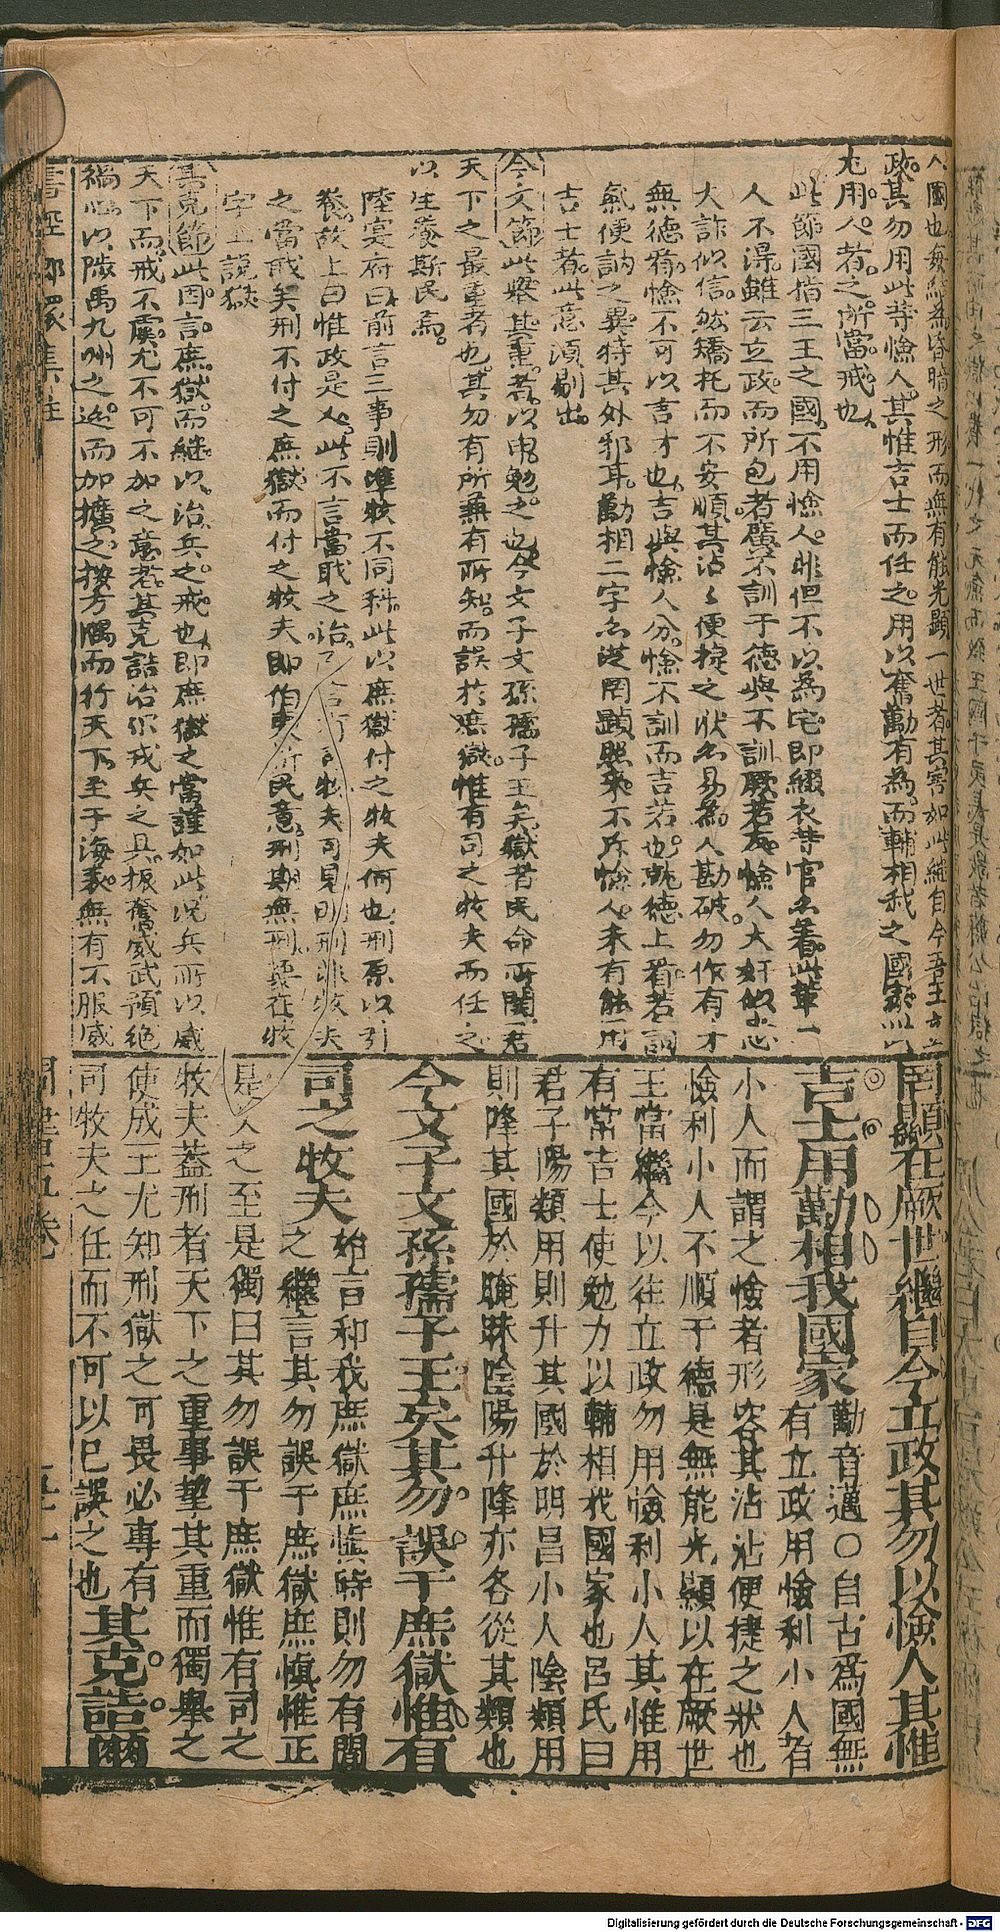 八國也每繼為昏暗之形而無有能光顯一世者其害如此繼自今吾王立
政其勿用此等憸人其惟吉士而任之用以奮勱有為而輔相我之國家
尤用人者之所當戒也
此節國指三王之國不用憸人非但不以為宅即綴衣等官名著此輩一
人不得雖云立政而所包者廣不訓于德與不訓厥若反憸人大奸似忠
大詐似信然矯托而不安順其沾沾便捷之狀名易為人勘破勿作有才
無德看憸不可以言才也吉與憸人分憸不訓而吉若也就德上看若訓
氣便訥之異特其外邪耳勱相二字名從罔顯照來不斥憸人未有能用
吉士者此意須剔出
今文節此舉其重者以申勉之也今文子文孫孺子王矣獄者民命所關君
天下之最重者也其勿有所兼有所知而誤於庶獄惟有司之牧夫而任之
以生養斯民焉
陸宴府曰前言三事則準牧不同科此以庶獄付之牧夫何也刑原以引
養故上曰惟政是人此不言當戢之治牧夫可見刑非牧夫
之當戢矣刑不付之庶獄而付之牧夫即伯夷折民意刑期無刑要在牧
字上說獄
其克節此因言庶獄而繼以治兵之戒也即庶獄之當謹如此況兵所以威
天下而戒不虞尤不可不加之意者其克詰治你戎兵之具振奮威武預絕
禍心以陟禹九州之迹而加擴之按方隅而行天下至于海表無有不服威
罔顯在厥世繼自今立政其勿以憸人其惟
吉士用勱相我國家 勱音邁○自古為國無
有立政用憸利小人者
小人而謂之憸者形容其沾沾便捷之狀也
憸利小人不順于德是無能光顯以在厥世
王當繼今以往立政勿用憸利小人其惟用
有常吉士使勉力以輔相我國家也呂氏曰
君子陽類用則升其國於明昌小人陰類用
則降其國於晻昧陰陽升降亦各從其類也
今文子文孫孺子王矣其勿誤于庶獄惟有
司之牧夫 始言和我庶獄庶慎時則勿有間
之繼言其勿誤于庶獄庶慎惟正
是乂之至是獨曰其勿誤于庶獄惟有司之
牧夫蓋刑者天下之重事挈其重而獨舉之
使成王尤知刑獄之可畏必專有
司牧夫之任而不可以己誤之也其克詰爾
Digitalisierung gefördert durch die Deutsche Forschungsgemeinschaft - DFG